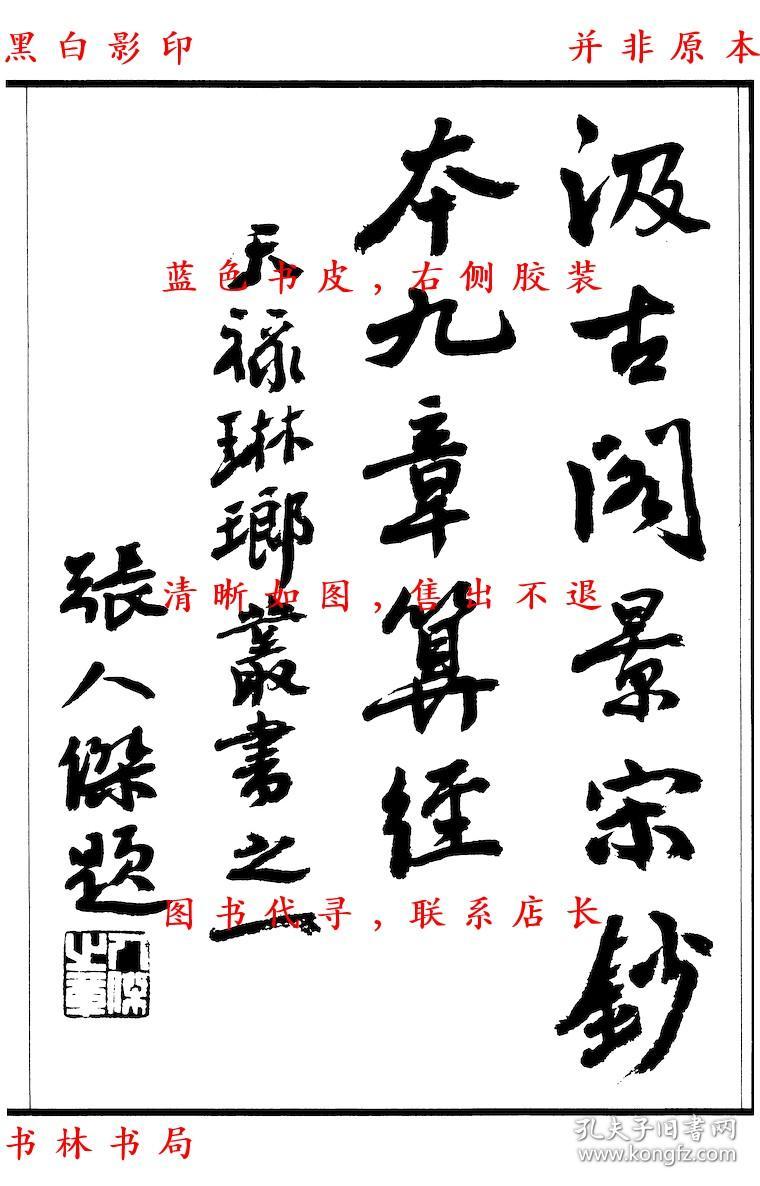 黑白影印
并非原本
汲古阁景宋鈔
本九章算经
天禄琳瑯叢書之一
張人傑題
人傑之章
蓝色书皮，右侧胶装
清晰如图，售出不退
图书代寻，联系店长
书林书局
孔夫子旧书网
www.kongfz.com